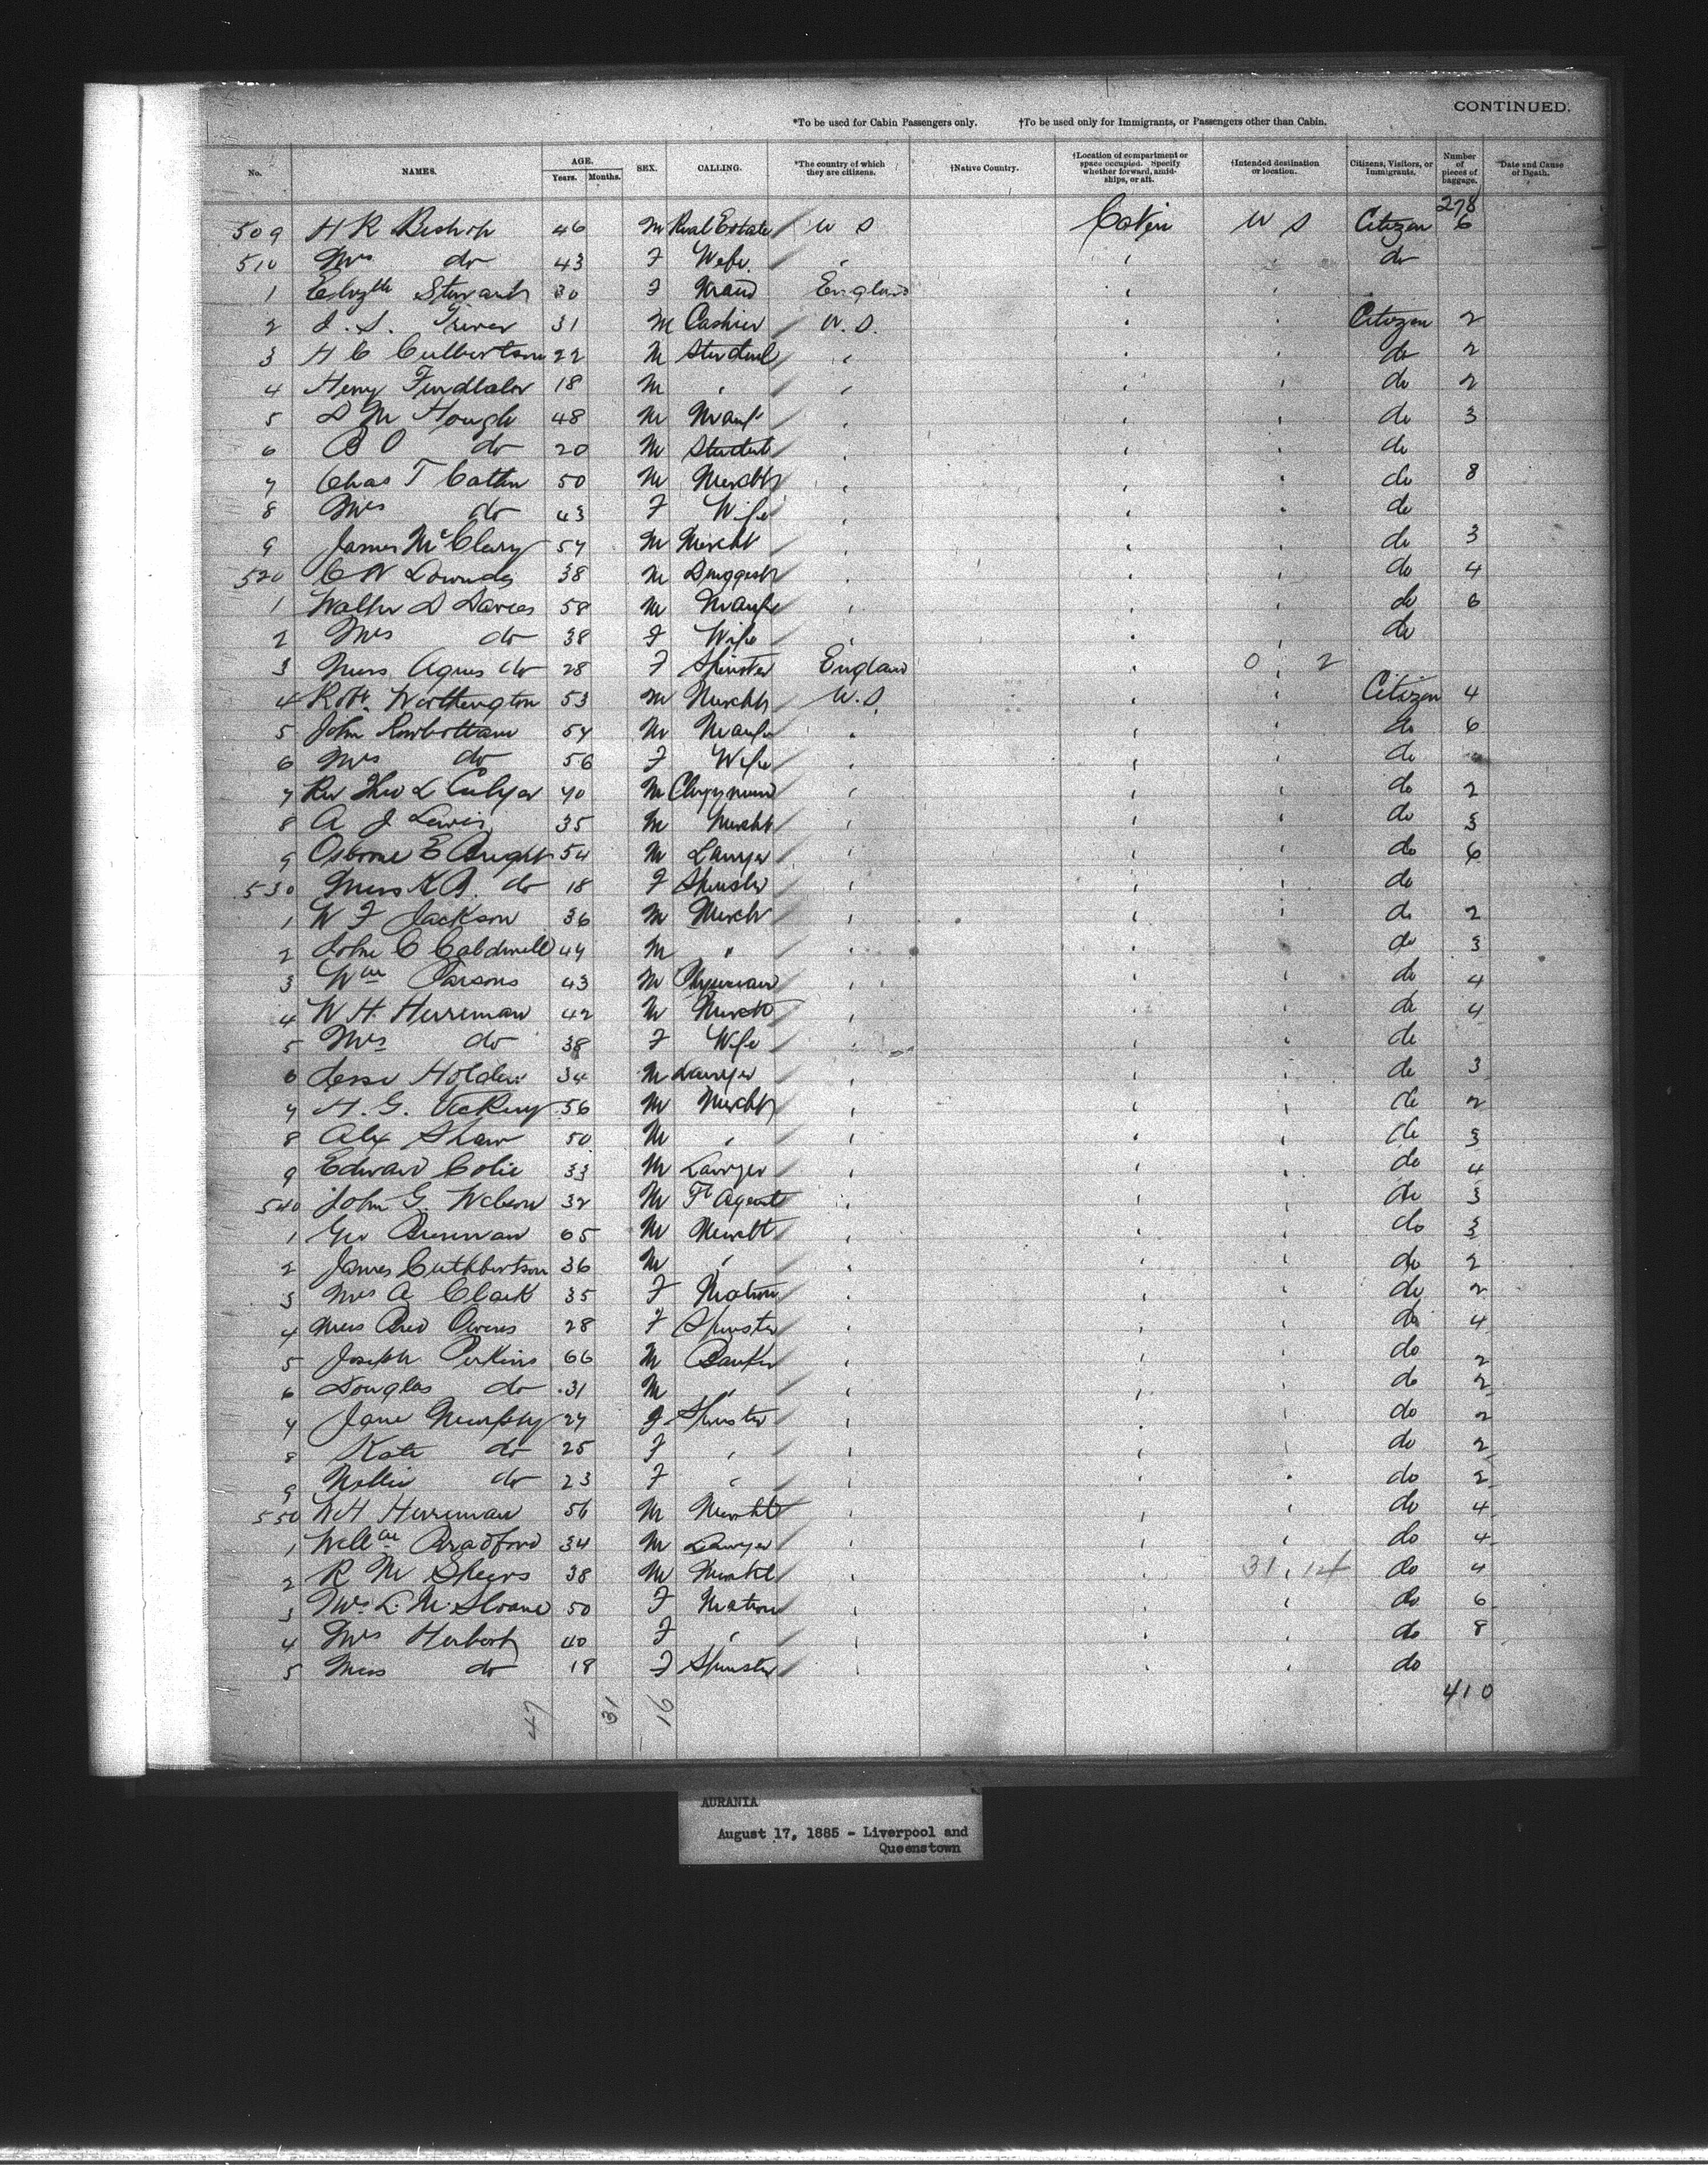 CONTINUED.
*To be used for Cabin Passengers only. †To be used only for Immigrants, or Passengers other than Cabin.
No. NAMES. AGE. Years. Months. SEX. CALLING. *The country of which they are citizens. †Native Country. †Location of compartment or space occupied. Specify whether forward, amidships, or aft. †Intended destination or location. Citizens, Visitors, or Immigrants. Number of pieces of baggage. *Date and Cause of Death.
278
509 H R Bishop 46 M Real Estate U S Cabin U S Citizen 6
510 Mrs do 43 F Wife do
1 30 F Maid England
2 31 M Cashier U.S. Citizen 2
3 H C Culbertson 22 M Student do 2
4 Henry 18 M do 2
5 D M Hough 48 M Manf do 3
6 B O do 20 M Student do
7 Chas T 50 M Mercht do 8
8 Mrs do 43 F Wife do
9 James McClury 57 M Mercht do 3
520 C W Downdes 38 M Druggist do 4
1 Walter D Davies 58 M Manfr do 6
2 Mrs do 38 F Wife do
3 Miss Agnes do 28 F Spinster England 0 2
4 Robt. Worthington 53 M Mercht U.S. Citizen 4
5 John Rowbottam 54 M Manfr do 6
6 Mrs do 56 F Wife do
7 Rev Theo L Cuyler 40 M Clergyman do 2
8 A J Lewis 35 M Mercht do 3
9 Osborne E Bright 54 M Lawyer do 6
530 Miss K B. do 18 F Spinster do
1 W F Jackson 36 M Mercht do 2
2 John C Caldwell 44 M " do 3
3 Wm Parsons 43 M Physician do 4
4 W H Herriman 42 M Mercht do 4
5 Mrs do 38 F Wife do
6 Holden 34 M Lawyer do 3
7 H. G. Vickery 56 M Mercht do 2
8 Alex Shaw 50 M do 3
9 Edward Colie 33 M Lawyer do 4
540 John G. 32 M Ft Agent do 3
1 Geo 65 M Mercht do 3
2 James Cuthbertson 36 M do 2
3 Mrs A Clark 35 F Matron do 2
4 Miss Owens 28 F Spinster do 4
5 Joseph Perkins 66 M Banker do 2
6 Douglas do 31 M do 2
7 Jane Murphy 27 F Spinster do 2
8 Kate do 25 F do 2
9 Nellie do 23 F do 2
550 W H Herriman 56 M Mercht do 4
1 Willm Bradford 34 M Lawyer do 4
2 R M 38 M Mercht 31 14 do 4
3 Mrs L. M. Sloane 50 F Matron do 6
4 Mrs Herbert 40 F do 8
5 Miss do 18 F Spinster do
47 31 16 410
AURANIA
August 17, 1885 - Liverpool and
Queenstown